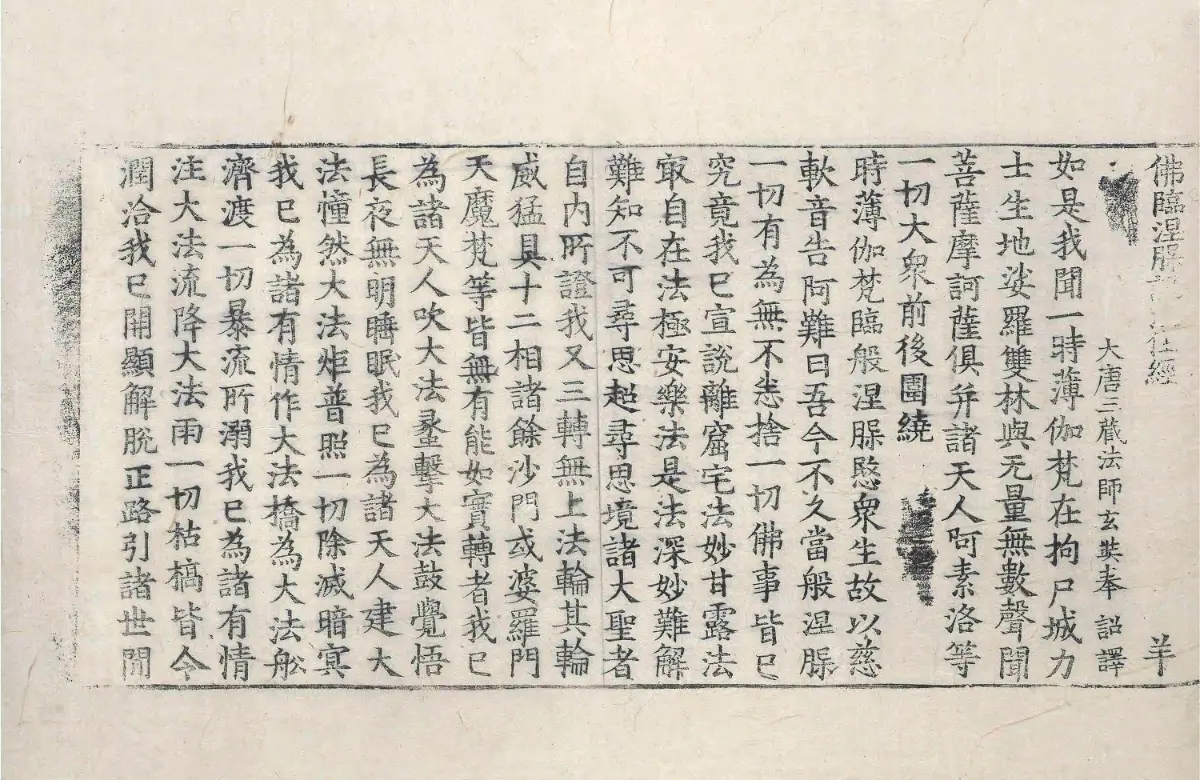 佛臨涅槃住經 羊
大唐三藏法師玄奘奉 詔譯
如是我聞一時薄伽梵在拘尸城力
士生地娑羅雙林與无量無數聲聞
菩薩摩訶薩俱并諸天人阿素洛等
一切大衆前後圍繞
時薄伽梵臨般涅槃愍衆生故以慈
軟音告阿難曰吾今不久當般涅槃
一切有為無不悉捨一切佛事皆已
究竟我已宣說離窟宅法妙甘露法
冣自在法極安樂法是法深妙難解
難知不可尋思超尋思境諸大聖者
自內所證我又三轉無上法輪其輪
威猛具十二相諸餘沙門或婆羅門
天魔梵等皆無有能如實轉者我已
為諸天人吹大法蠡擊大法鼓覺悟
長夜無明睡眠我已為諸天人建大
法憧然大法炬普照一切除滅暗冥
我已為諸有情作大法橋為大法舩
濟渡一切暴流所溺我已為諸有情
注大法流降大法雨一切枯槁皆令
潤洽我已開顯解脫正路引諸世間